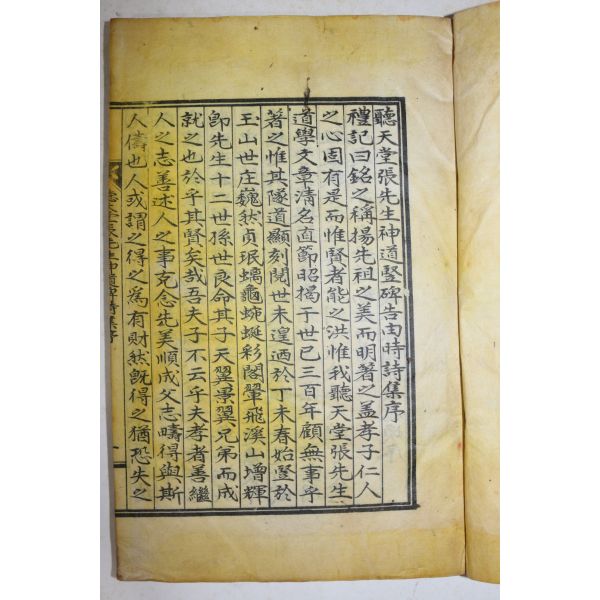 聽天堂張先生神道豎碑告由時詩集序
禮記曰銘之稱揚先祖之美而明著之盖孝子仁人
之心固有是而惟賢者能之洪惟我聽天堂張先生
道學文章清名直節昭揭于世已三百年顧無事乎
著之惟其隧道顯刻閱世未遑迺於丁未春始豎於
玉山世庄巍然貞珉螭龜蜿蜒彩閣翬飛溪山增輝
卽先生十二世孫世良命其子天翼景翼兄弟而成
就之也於乎其賢矣哉吾夫子不云乎夫孝者善繼
人之志善述人之事克念先美順成父志疇得與斯
人儔也人或謂之得之爲有財然旣得之猶恐失之
聽天堂張先生神道碑詩集序